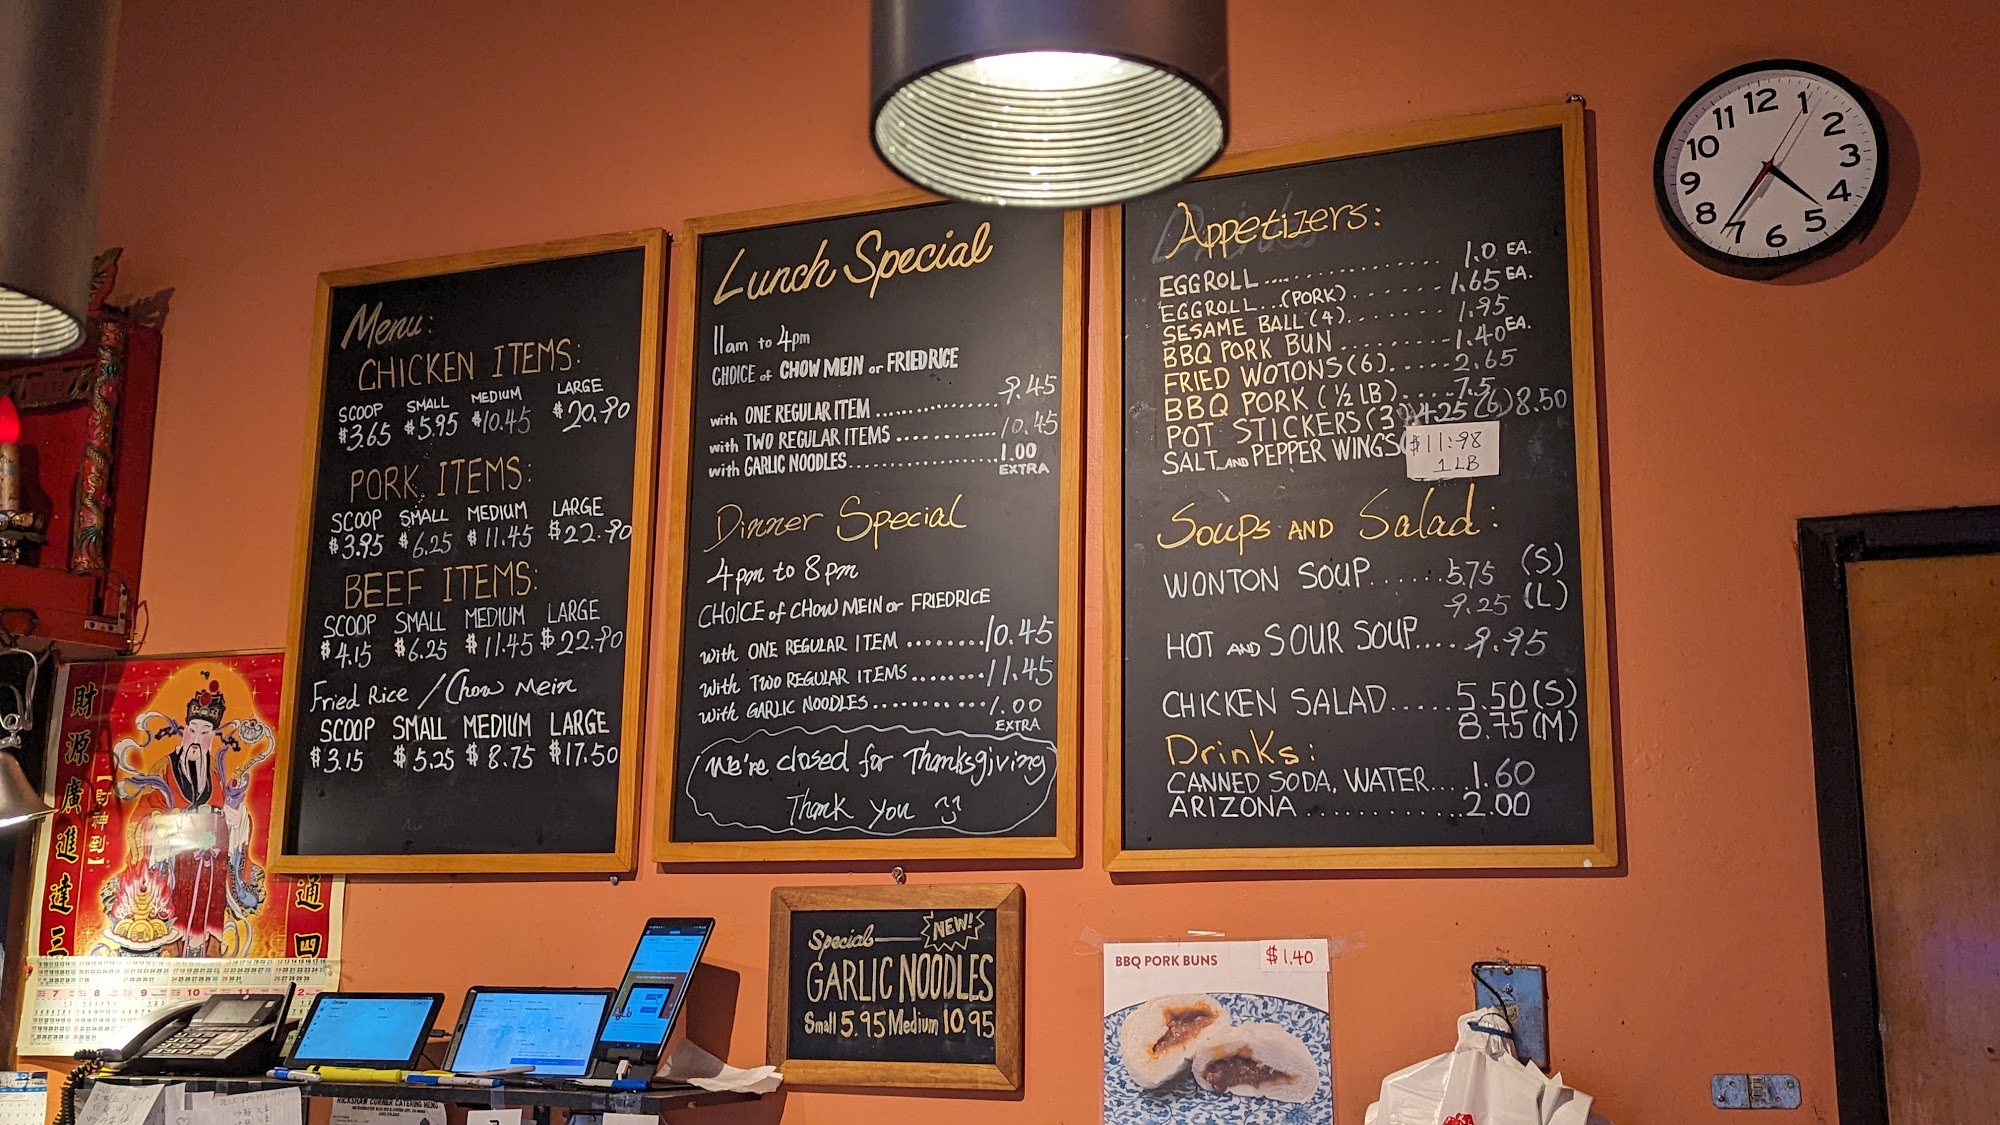 Menu:
CHICKEN ITEMS:
SCOOP SMALL MEDIUM LARGE
$3.65 $5.95 $10.45 $20.90
PORK ITEMS:
SCOOP SMALL MEDIUM LARGE
$3.95 $6.25 $11.45 $22.90
BEEF ITEMS:
SCOOP SMALL MEDIUM LARGE
$4.15 $6.25 $11.45 $22.90
Fried Rice / Chow Mein
SCOOP SMALL MEDIUM LARGE
$3.15 $5.25 $8.75 $17.50
Lunch Special
11am to 4pm
CHOICE of CHOW MEIN or FRIED RICE
with ONE REGULAR ITEM ................ 9.45
with TWO REGULAR ITEMS ............ 10.45
with GARLIC NOODLES .................. 1.00
EXTRA
Dinner Special
4pm to 8pm
CHOICE of CHOW MEIN or FRIEDRICE
with ONE REGULAR ITEM ......... 10.45
with TWO REGULAR ITEMS ........ 11.45
with GARLIC NOODLES ............ 1.00
EXTRA
We're closed for Thanksgiving
Thank you
Appetizers:
EGGROLL ................ 1.0 EA.
EGGROLL...(PORK) ....... 1.65 EA.
SESAME BALL (4) ........ 1.95
BBQ PORK BUN .......... 1.40 EA.
FRIED WOTONS (6) ...... 2.65
BBQ PORK (½ LB) .... 7.5
POT STICKERS (3) 4.25 (6) 8.50
SALT AND PEPPER WINGS $11.98
1 LB
Soups AND Salad:
WONTON SOUP ...... 5.75 (S)
9.25 (L)
HOT AND SOUR SOUP .... 9.95
CHICKEN SALAD ..... 5.50 (S)
8.75 (M)
Drinks:
CANNED SODA, WATER .... 1.60
ARIZONA ............. 2.00
12 1 2 3 4 5 6 7 8 9 10 11
Special NEW!
GARLIC NOODLES
Small 5.95 Medium 10.95
BBQ PORK BUNS $1.40
財源廣進達三
【財神到】
通四
7 8 9 10 11
Orders
RICKSHAW CORNER CATERING MENU